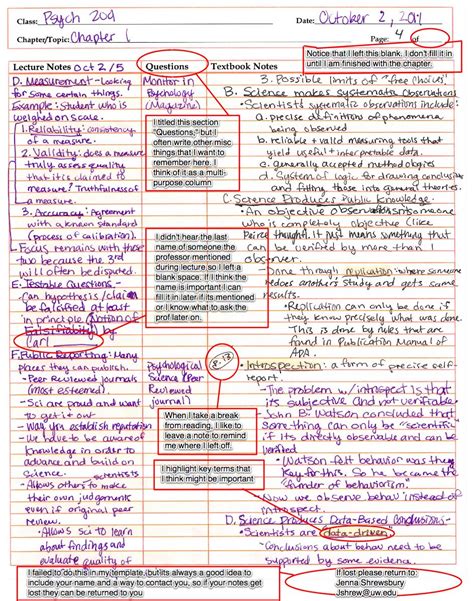 Class: Psych 209
Date: October 2, 2011
Chapter/Topic: Chapter 1
Page: 4 of
Notice that I left this blank. I don't fill it in
until I am finished with the chapter.
Lecture Notes Oct 2/5
D. Measurement - Looking
for some certain things.
Example: Student who is
weighed on scale.
1. Reliability: consistency
of a measure.
2. Validity: does a measure
truly assess quality
that it is claimed to
measure? Truthfulness of
a measure.
3. Accuracy: Agreement
with a known standard
(process of calibration).
Focus remains with these
two because the 3rd
will often be disputed.
E. Testable Questions -
Can hypothesis/claim
be falsified at least
in principle (Notion of
Falsifiability) by
Carl
F. Public Reporting: Many
places they can publish.
- Peer Reviewed Journals
(most esteemed).
- Sci are proud and want
to get it out
- Way sci establish reputation
- We have to be aware of
knowledge in order to
advance and build on
science.
- Allows scientists others to make
their own judgements
even if original peer
review.
- Allows sci to learn
about findings and
evaluate quality of
Questions
Monitor in
Psychology
(Magazine)
I titled this section
"Questions," but I
often write other misc
things that I want to
remember here. I
think of it as a multi-
purpose column
I didn't hear the last
name of someone the
professor mentioned
during lecture so I left a
blank space. If I think the
name is important I can
fill it in later if its mentioned
or I know what to ask the
prof later on.
Psychological
Science (Peer
Reviewed
journal
8-13
When I take a break
from reading, I like to
leave a note to remind
me where I left off.
I highlight key terms that
I think might be important
Textbook Notes
3. Possible limits of "free choices"
B. Science makes systematic observations
• Scientists systematic observations include:
a. precise definitions of phenomena
being observed
b. reliable + valid measuring tools that
yield useful + interpretable data.
c. generally accepted methodologies
d. System of logic for drawing conclusions
and fitting those into general theories.
C. Science Produces Public Knowledge:
• An objective observation is someone
who is completely objective (like
Peirce thought). It just means something that
can be verified by more than
observer.
- Done through replication: where someone
redoes another's study and gets same
results.
• Replication can only be done if
they know precisely what was done
This is done by rules that are
found in Publication Manual of
APA.
• Introspection: a form of precise self-
report.
- The problem w/ introspect is that
its subjective and not verifiable
- John B. Watson concluded that
something can only be "scientific"
if its observable and can be
verified
• Watson felt behavior was the
key for this. So he became the
"funder of behaviorism"
Now we observe behav instead of
introspect.
D. Science Produces Data-Based Conclusions-
• Scientists are data-driven
- Conclusions about behav need to
be supported by some evidence.
I failed to do this in my template, but its always a good idea to
include your name and a way to contact you, so if your notes get
lost they can be returned to you
If lost please return to:
Jenna Shrewsbury
Jshrew@uw.edu